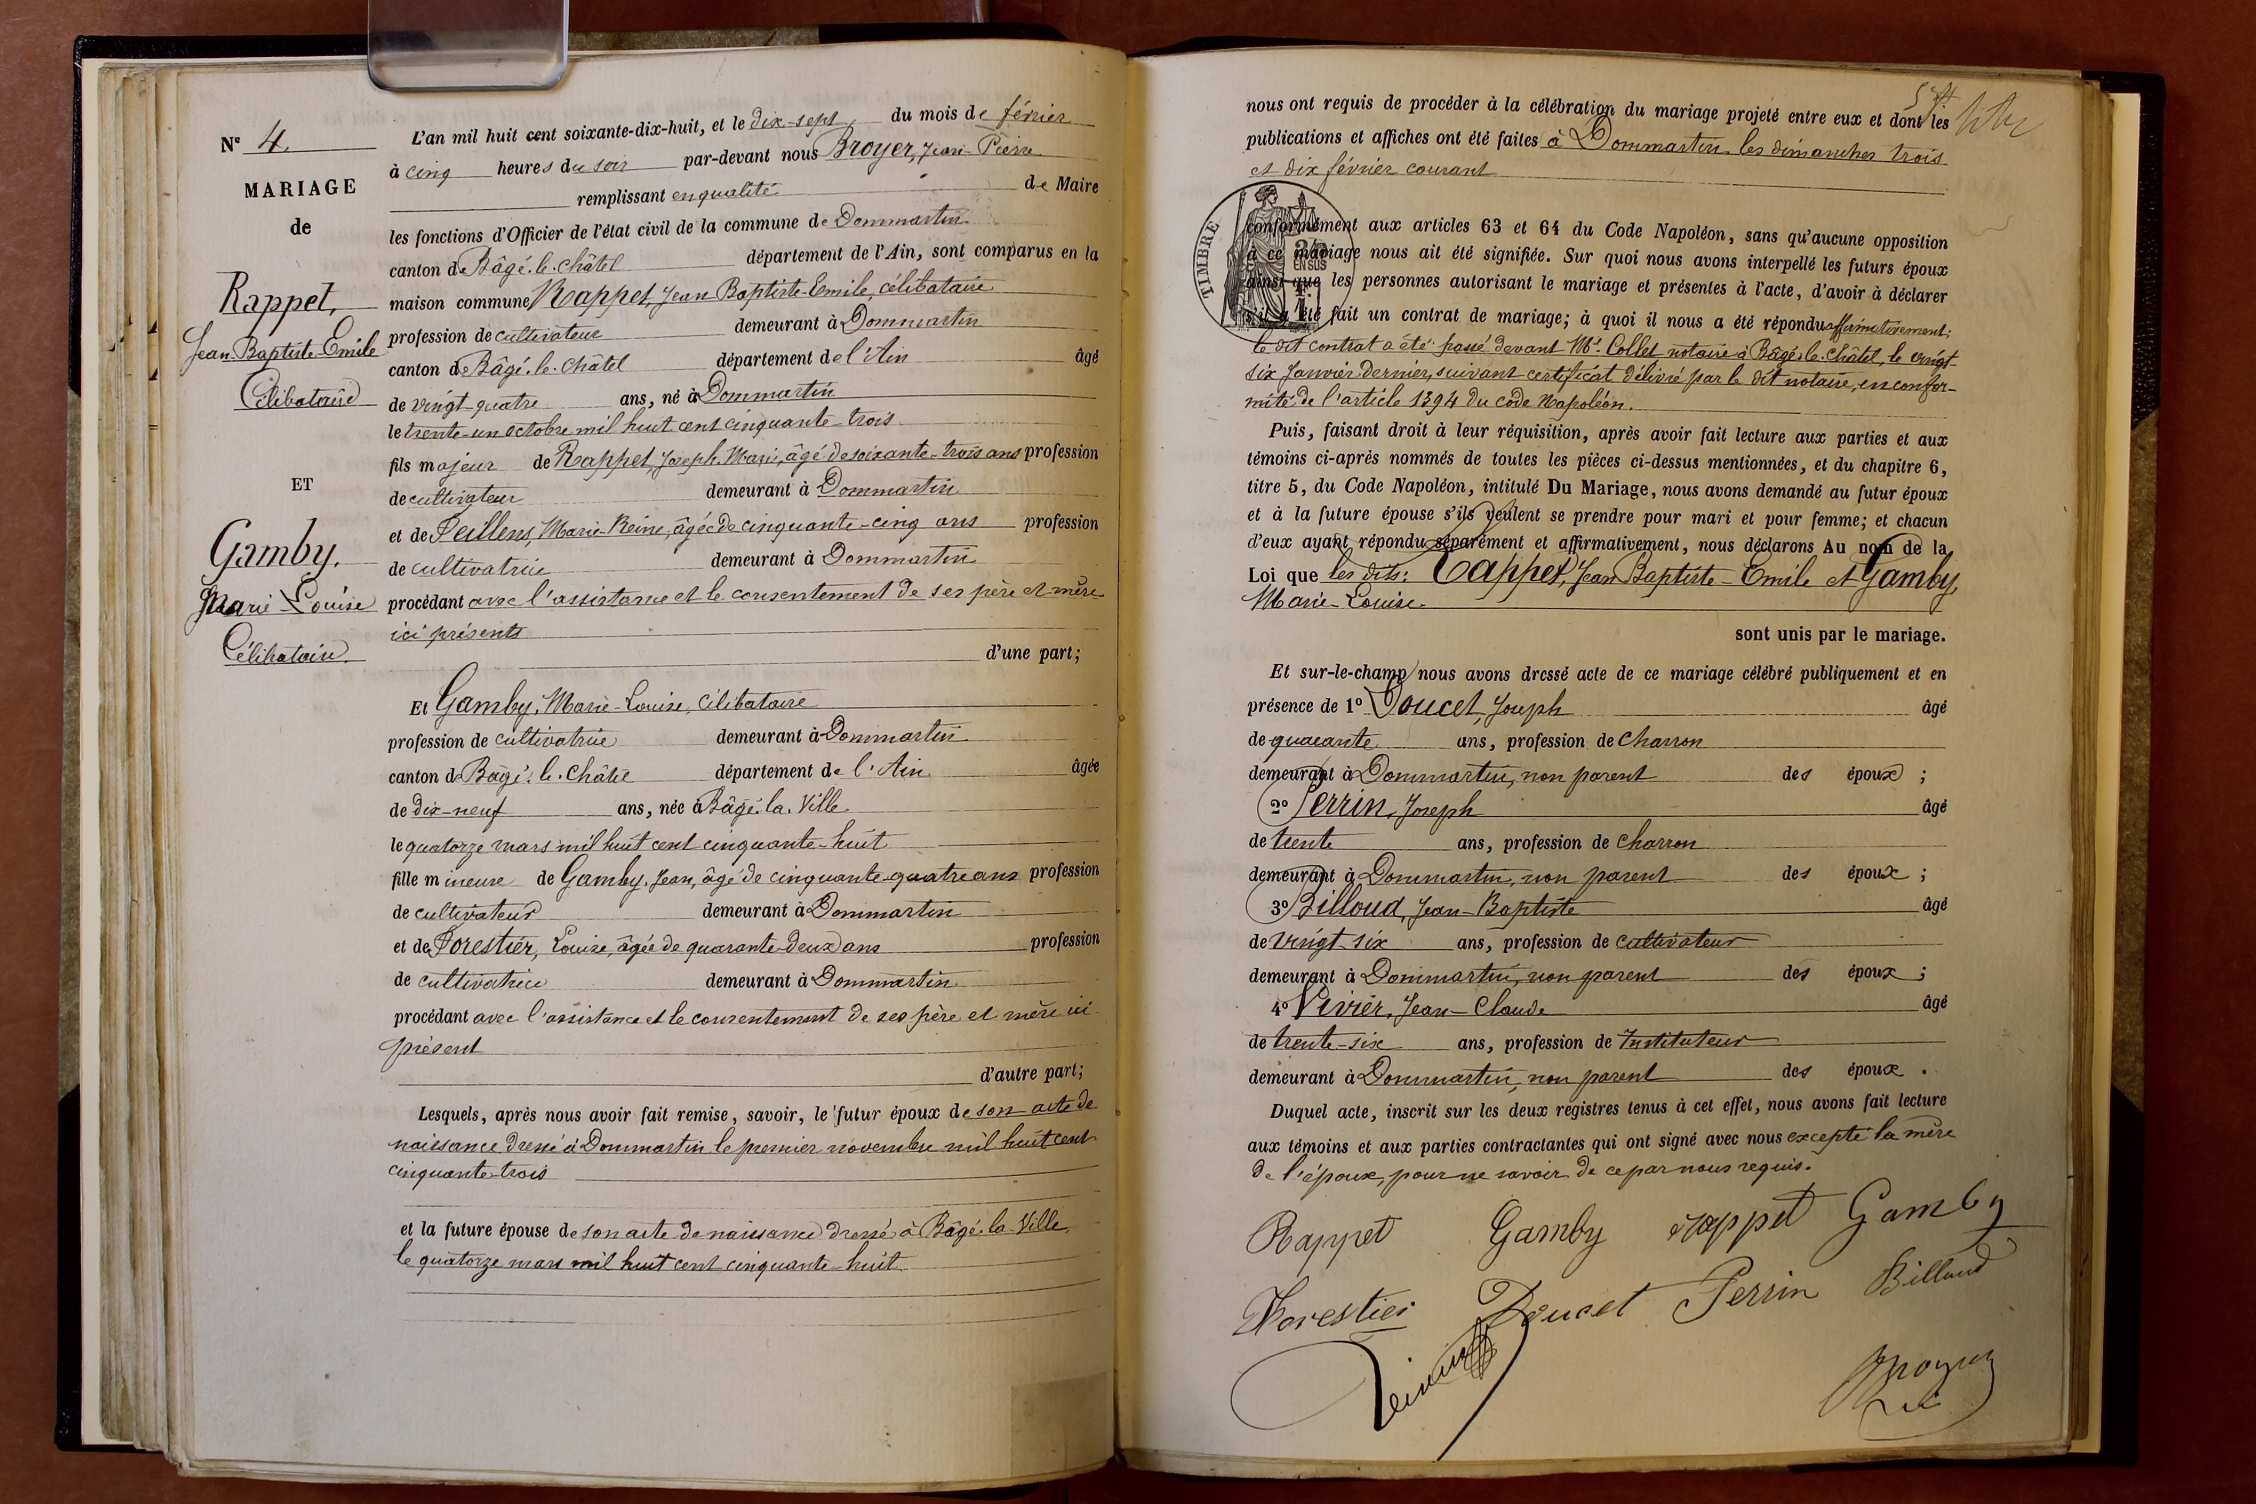 N° 4.
MARIAGE
de
Rappet,
Jean-Baptiste-Emile
Célibataire
ET
Gamby,
Marie-Louise
Célibataire.
L'an mil huit cent soixante-dix-huit, et le dix-sept du mois de février
à cinq heures du soir par-devant nous Broyer, Jean-Pierre
remplissant en qualité de Maire
les fonctions d'Officier de l'état civil de la commune de Dommartin
canton de Bâgé-le-Châtel département de l'Ain, sont comparus en la
maison commune Rappet, Jean Baptiste-Emile, célibataire
profession de cultivateur demeurant à Dommartin
canton de Bâgé-le-Châtel département de l'Ain âgé
de vingt-quatre ans, né à Dommartin
le trente-un octobre mil huit cent cinquante-trois
fils majeur de Rappet, Joseph-Marie, âgé de soixante-trois ans profession
de cultivateur demeurant à Dommartin
et de Peillens, Marie-Reine, âgée de cinquante-cinq ans profession
de cultivatrice demeurant à Dommartin
procédant avec l'assistance et le consentement de ses père et mère
ici présents
d'une part;
Et Gamby, Marie-Louise, célibataire
profession de cultivatrice demeurant à Dommartin
canton de Bâgé-le-Châtel département de l'Ain âgée
de dix-neuf ans, née à Bâgé-la-Ville
le quatorze mars mil huit cent cinquante-huit
fille mineure de Gamby, Jean, âgé de cinquante-quatre ans profession
de cultivateur demeurant à Dommartin
et de Forestier, Louise, âgée de quarante-deux ans profession
de cultivatrice demeurant à Dommartin
procédant avec l'assistance et le consentement de ses père et mère ici
présent
d'autre part;
Lesquels, après nous avoir fait remise, savoir, le futur époux de son acte de
naissance dressé à Dommartin le premier novembre mil huit cent
cinquante-trois
et la future épouse de son acte de naissance dressé à Bâgé-la-Ville
le quatorze mars mil huit cent cinquante-huit
nous ont requis de procéder à la célébration du mariage projeté entre eux et dont les
publications et affiches ont été faites à Dommartin les dimanches trois
et dix février courant
TIMBRE
2/10
EN SUS
conformément aux articles 63 et 64 du Code Napoléon, sans qu'aucune opposition
à ce mariage nous ait été signifiée. Sur quoi nous avons interpellé les futurs époux
ainsi que les personnes autorisant le mariage et présentes à l'acte, d'avoir à déclarer
s'il a été fait un contrat de mariage; à quoi il nous a été répondu affirmativement;
le dit contrat a été passé devant Me. Collet notaire à Bâgé-le-Châtel, le vingt
six Janvier dernier, suivant certificat délivré par le dit notaire, en confor-
mité de l'article 1394 du code Napoléon.
Puis, faisant droit à leur réquisition, après avoir fait lecture aux parties et aux
témoins ci-après nommés de toutes les pièces ci-dessus mentionnées, et du chapitre 6,
titre 5, du Code Napoléon, intitulé Du Mariage, nous avons demandé au futur époux
et à la future épouse s'ils veulent se prendre pour mari et pour femme; et chacun
d'eux ayant répondu séparément et affirmativement, nous déclarons Au nom de la
Loi que les dits: Rappet, Jean Baptiste-Emile et Gamby,
Marie-Louise.
sont unis par le mariage.
Et sur-le-champ nous avons dressé acte de ce mariage célébré publiquement et en
présence de 1° Doucet, Joseph âgé
de quarante ans, profession de charron
demeurant à Dommartin, non parent des époux ;
2° Perrin, Joseph âgé
de trente ans, profession de charron
demeurant à Dommartin, non parent des époux ;
3° Billoud, Jean-Baptiste âgé
de vingt-six ans, profession de cultivateur
demeurant à Dommartin, non parent des époux ;
4° Vivier, Jean-Claude âgé
de trente-six ans, profession de Instituteur
demeurant à Dommartin, non parent des époux .
Duquel acte, inscrit sur les deux registres tenus à cet effet, nous avons fait lecture
aux témoins et aux parties contractantes qui ont signé avec nous excepté la mère
de l'époux, pour ne savoir de ce par nous requis.
Rappet Gamby rappet Gamby
Forestier Doucet Perrin Billoud
Vivier Broyer